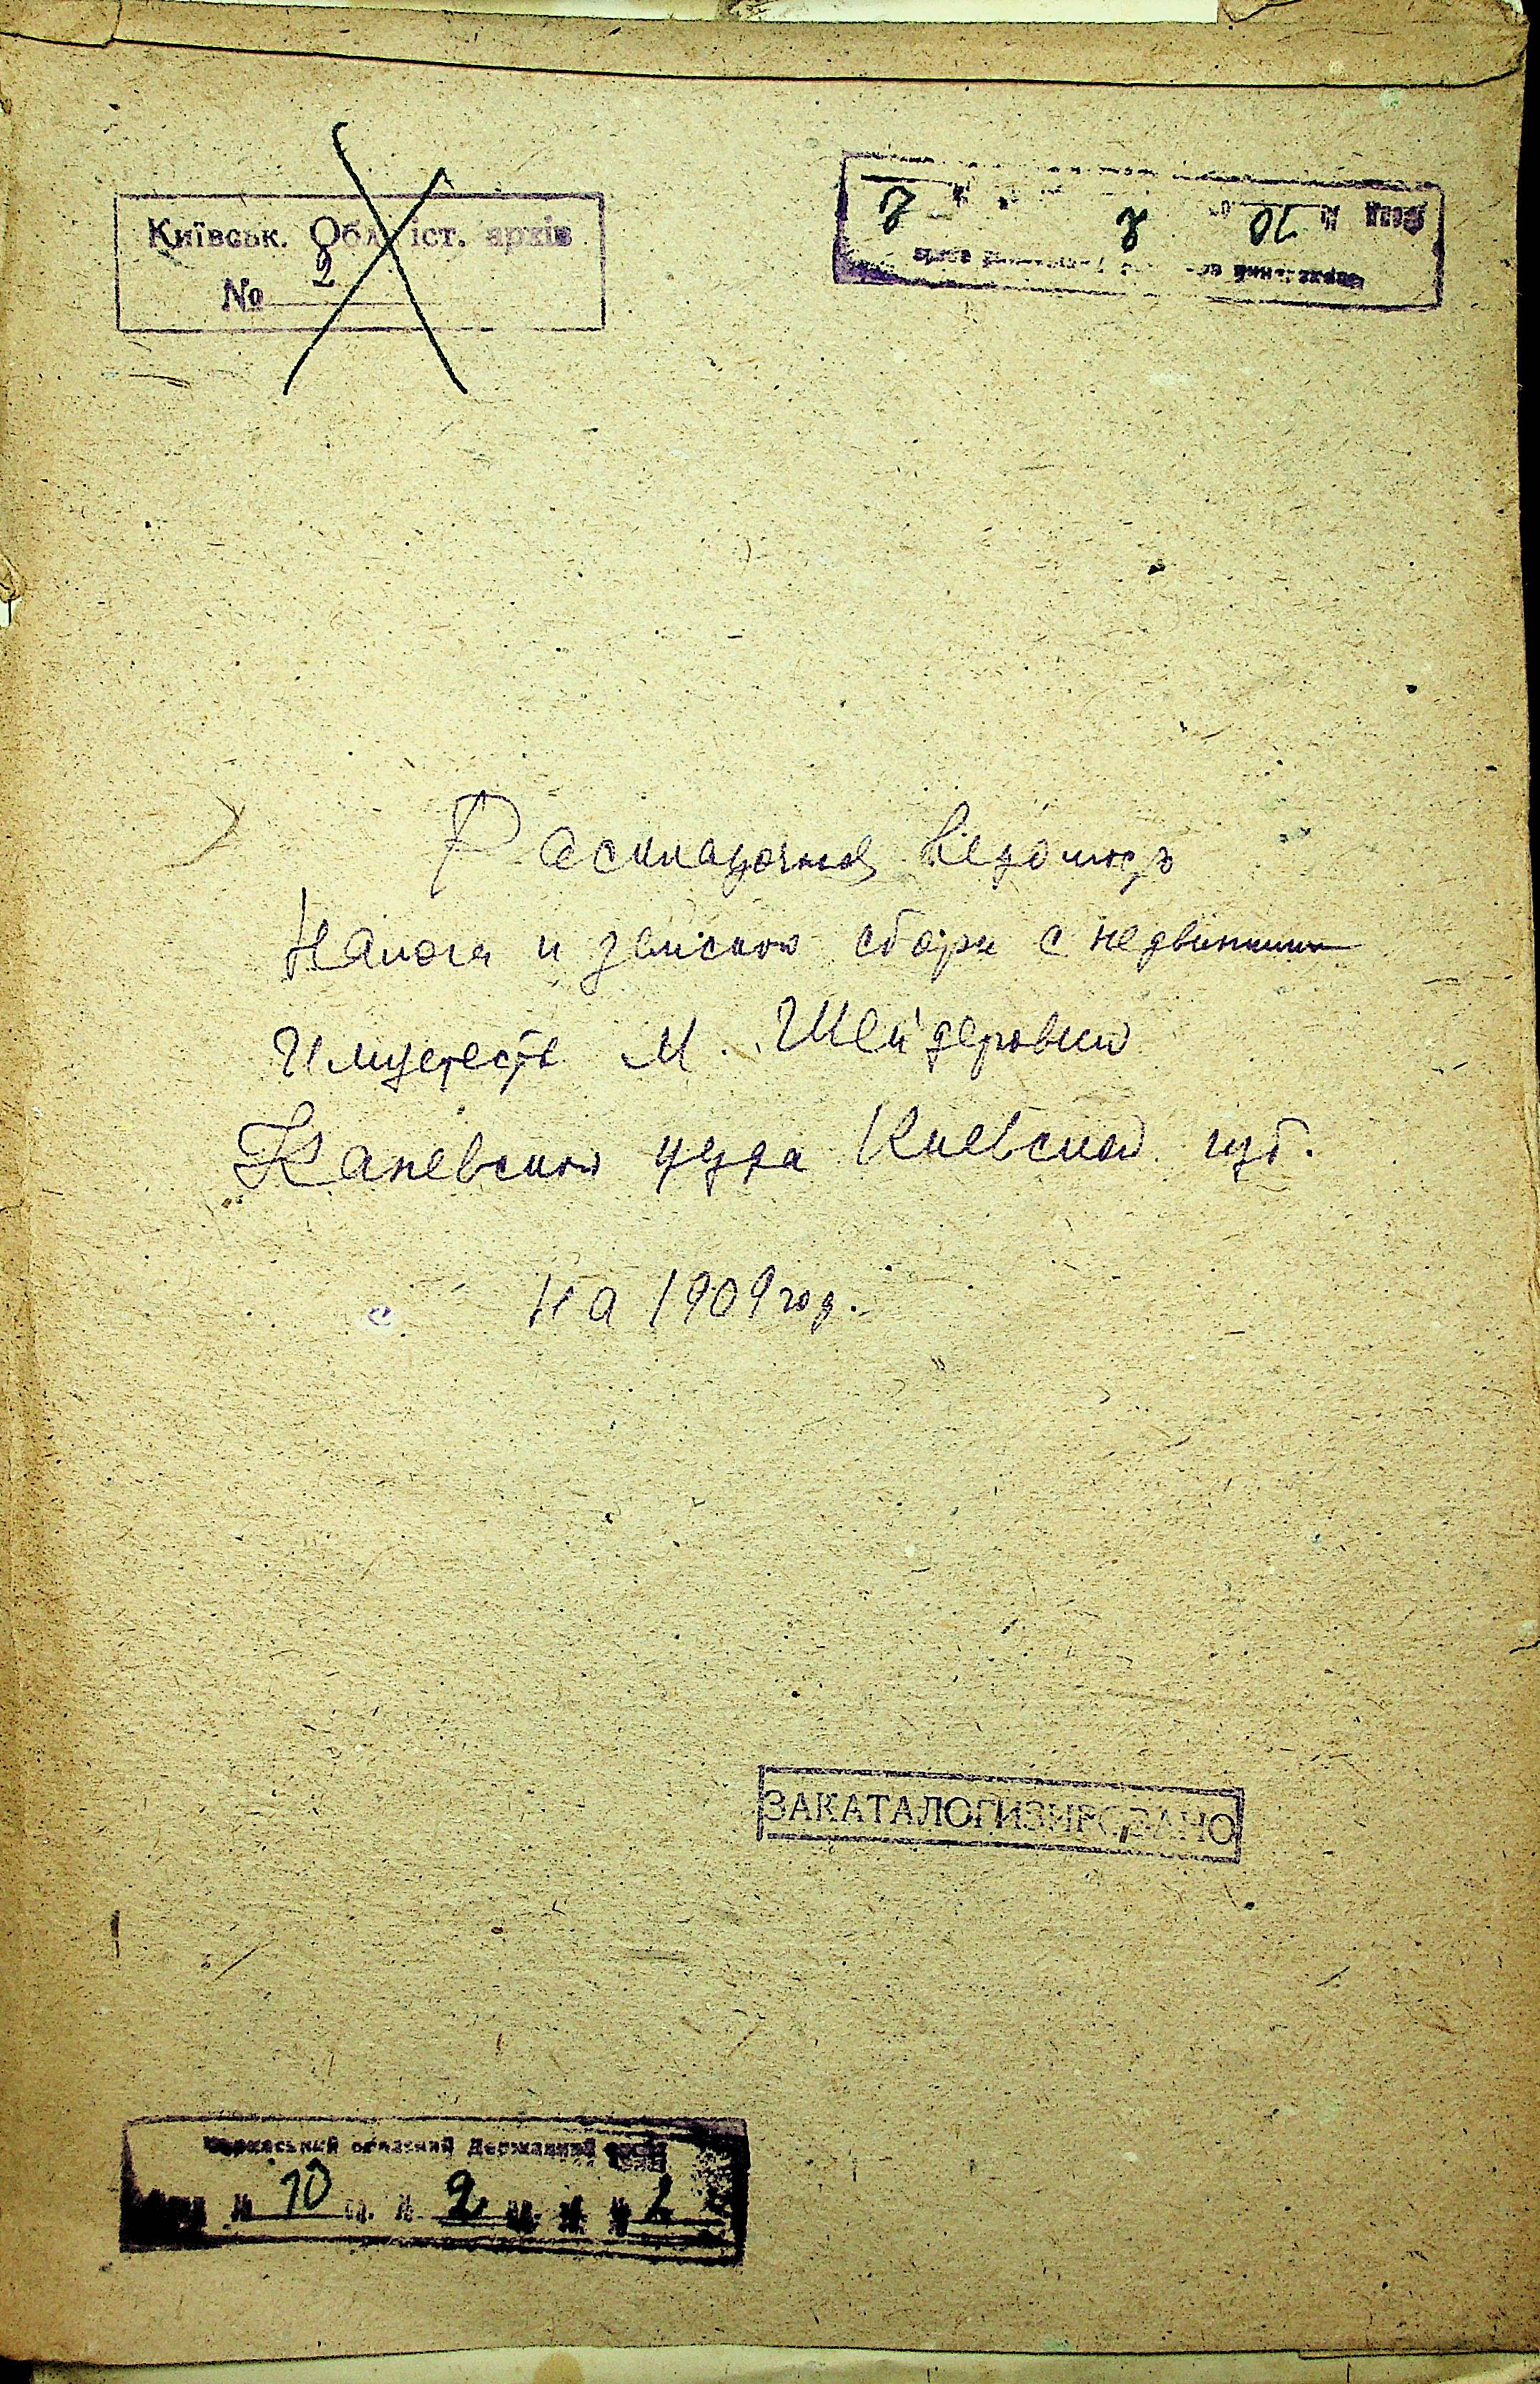 Київськ. Обл. іст. архів
№ 2
Раскладочная ведомость
Налога и земских сбора с недвижимых
Имуществ М. Шендеровки
Каневского уезда Киевской губ.
на 1909 год.
ЗАКАТАЛОГИЗИРОВАНО
Черкаський обласний Державний архів
№ 10 оп. № 2 1